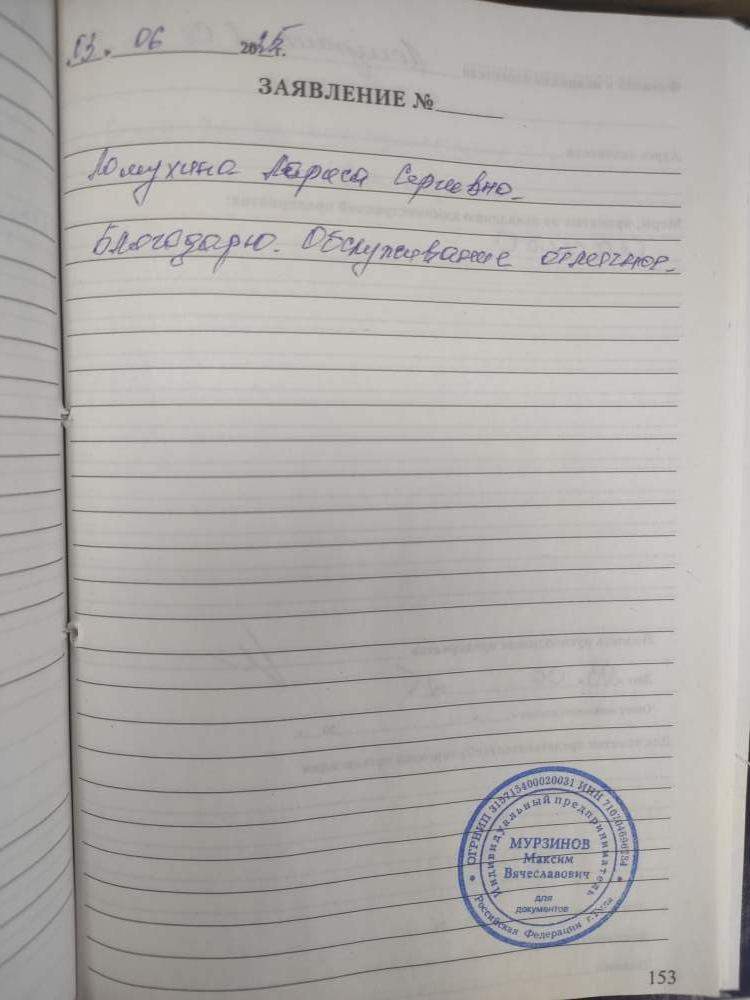 13. 06 2025г.
ЗАЯВЛЕНИЕ №
Ломухина Лариса Сергиевна.
Благодарю. Обслуживание отличное.
ОГРНИП 315715400020031 ИНН
Индивидуальный предприниматель
МУРЗИНОВ
Максим
Вячеславович
для
документов
Российская Федерация г.Тула
153